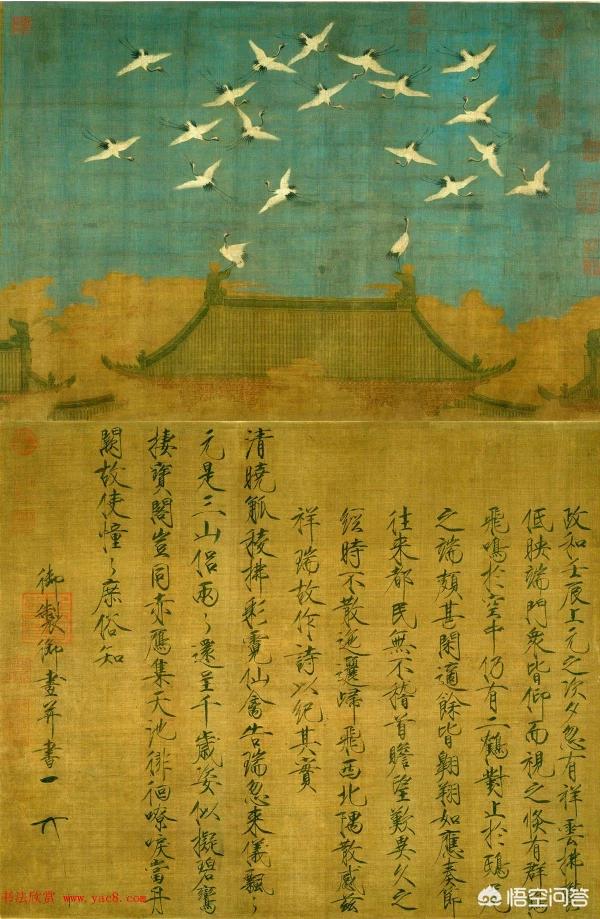 政和壬辰上元之次夕忽有祥雲拂
低映端門衆皆仰而視之倏有群鶴
飛鳴於空中仍有二鶴對止於鴟
之端頗甚閑適餘皆翱翔如應奏節
往來都民無不稽首瞻望歎異久之
經時不散迤邐歸飛西北隅散感茲
祥瑞故作詩以紀其實
清曉觚稜拂彩霓仙禽告瑞忽來儀飄々
元是三山侶兩々還呈千歲姿似擬碧鸞
棲寶閣豈同赤鴈集天池徘徊嘹唳當丹
闕故使憧々庶俗知
御製御畫并書
书法欣赏 www.yac8.com
悟空问答